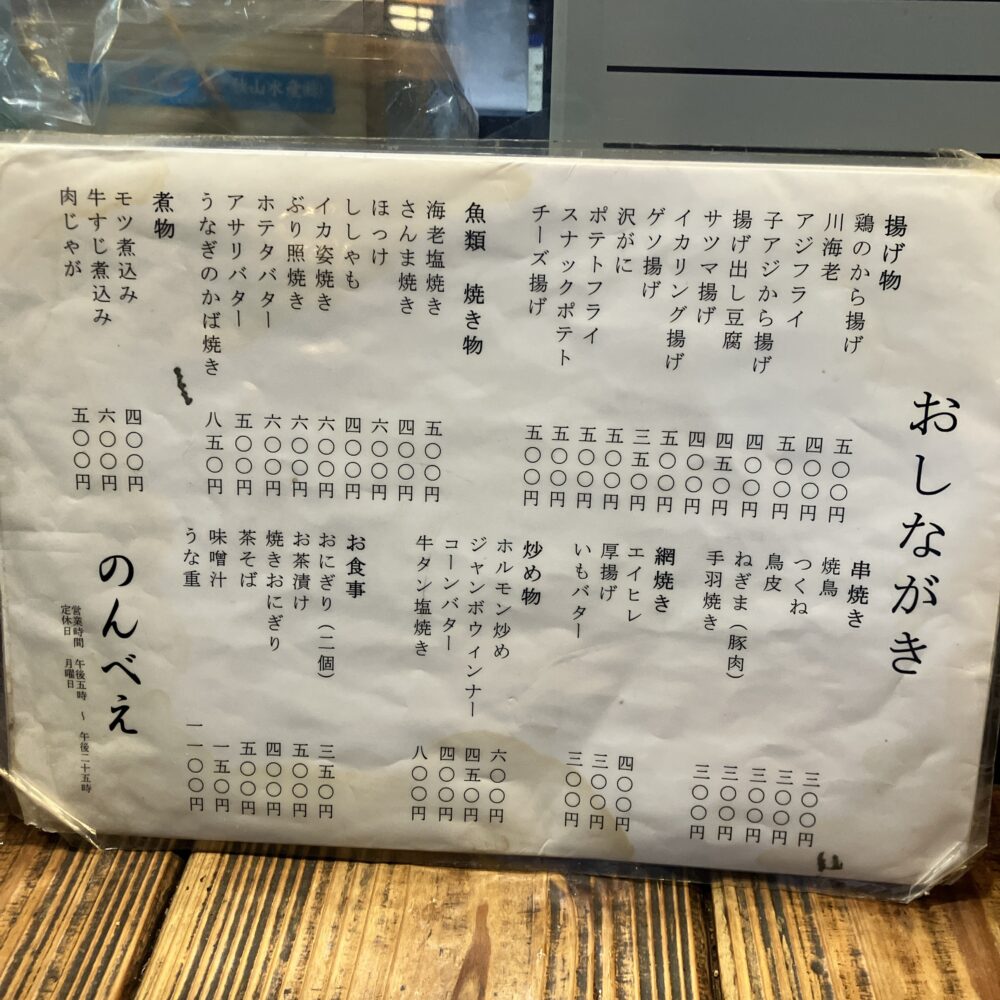 おしながき
揚げ物
鶏のから揚げ 五〇〇円
川海老 四〇〇円
アジフライ 五〇〇円
子アジから揚げ 四〇〇円
揚げ出し豆腐 四五〇円
サツマ揚げ 四〇〇円
イカリング揚げ 五〇〇円
ゲソ揚げ 三五〇円
沢がに 五〇〇円
ポテトフライ 五〇〇円
スナックポテト 五〇〇円
チーズ揚げ 五〇〇円
魚類 焼き物
海老塩焼き 五〇〇円
さんま焼き 四〇〇円
ほっけ 六〇〇円
ししゃも 四〇〇円
イカ姿焼き 六〇〇円
ぶり照焼き 六〇〇円
ホテタバター 六〇〇円
アサリバター 五〇〇円
うなぎのかば焼き 八五〇円
煮物
モツ煮込み 四〇〇円
牛すじ煮込み 六〇〇円
肉じゃが 五〇〇円
串焼き
焼鳥 三〇〇円
つくね 三〇〇円
鳥皮 三〇〇円
ねぎま（豚肉） 三〇〇円
手羽焼き 三〇〇円
網焼き
エイヒレ 四〇〇円
厚揚げ 三〇〇円
いもバター 三〇〇円
炒め物
ホルモン炒め 六〇〇円
ジャンボウィンナー 四五〇円
コーンバター 四〇〇円
牛タン塩焼き 八〇〇円
お食事
おにぎり（二個） 三五〇円
お茶漬け 五〇〇円
焼きおにぎり 四〇〇円
茶そば 五〇〇円
味噌汁 一五〇円
うな重 一一〇〇円
のんべえ
営業時間 午後五時 ～ 午後二十五時
定休日 月曜日
山水産